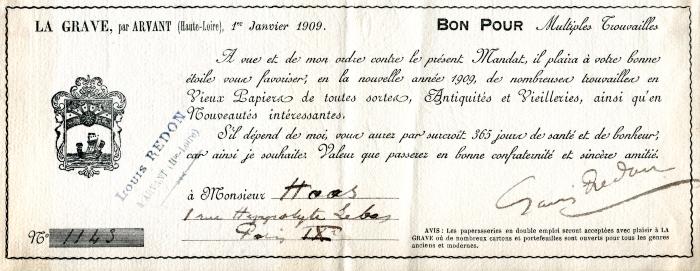 LA GRAVE, par ARVANT (Haute-Loire), 1er Janvier 1909.
BON POUR Multiples Trouvailles
A vue et de mon ordre contre le présent Mandat, il plaira à votre bonne
étoile vous favoriser, en la nouvelle année 1909, de nombreuses trouvailles en
Vieux Papiers de toutes sortes, Antiquités et Vieilleries, ainsi qu'en
Nouveautés intéressantes.
S'il dépend de moi, vous aurez par surcroit 365 jours de santé et de bonheur,
car ainsi je souhaite. Valeur que passerez en bonne confraternité et sincère amitié.
Louis REDON
à ARVANT (Hte-Loire)
à Monsieur Haas
1 rue Hyppolyte Lebas
Paris IXe
Louis Redon
No 1143
AVIS : Les paperasseries en double emploi seront acceptées avec plaisir à LA
GRAVE où de nombreux cartons et portefeuilles sont ouverts pour tous les genres
anciens et modernes.